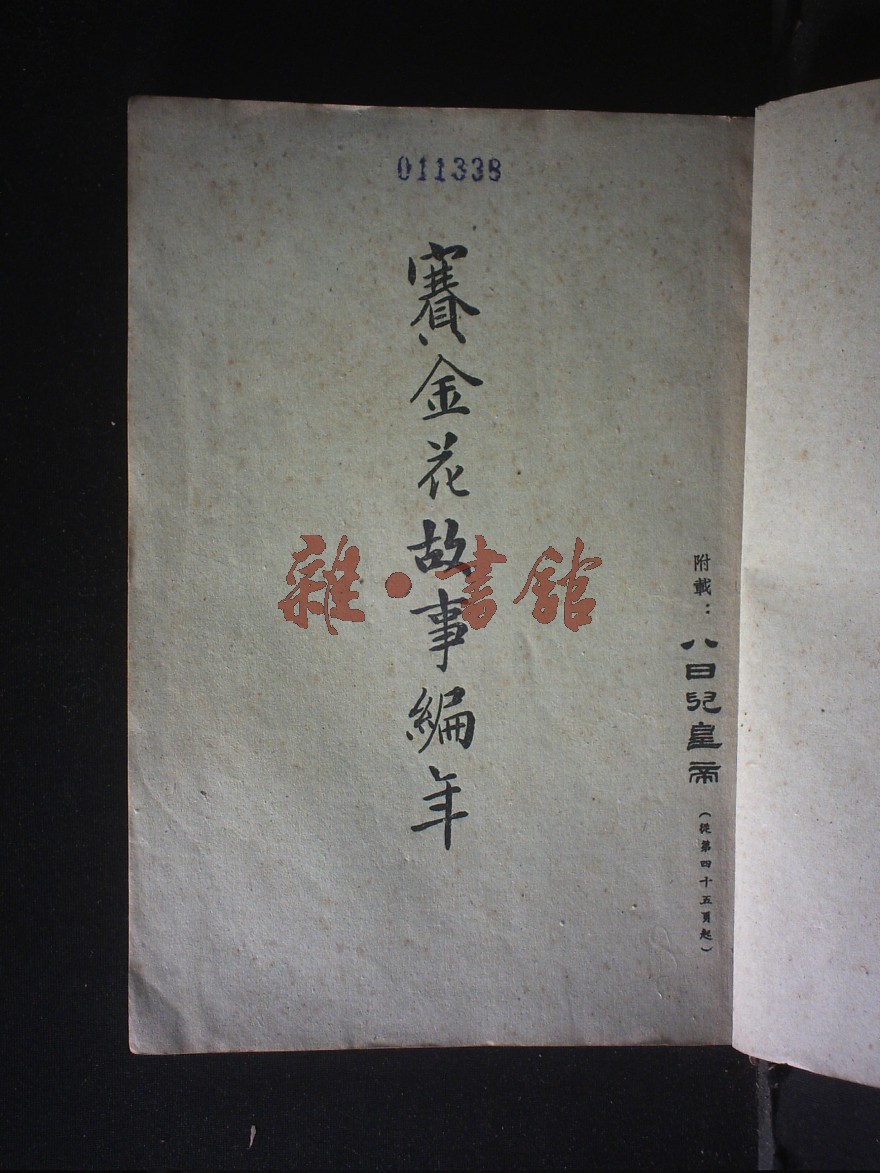 011338
賽金花故事編年
雜·書館
附載：八日兒皇帝（從第四十五頁起）